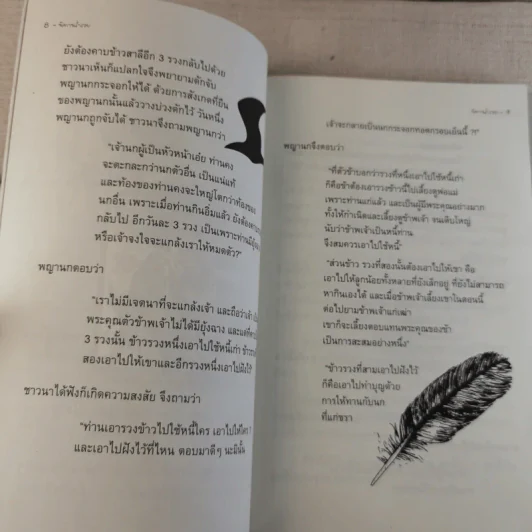 8 - นิทานอ่านสนุก
ยังต้องคาบข้าวสาลีอีก 3 รวงกลับไปด้วย
ชาวนาเห็นก็แปลกใจจึงพยายามดักจับ
พญานกกระจอกให้ได้ ด้วยการสังเกตที่ยืน
ของพญานกนั้นแล้ววางบ่วงดักไว้ วันหนึ่ง
พญานกถูกจับได้ ชาวนาจึงถามพญานกว่า
"เจ้านกผู้เป็นหัวหน้าเอ๋ย ท่านคง
จะตะกละกว่านกตัวอื่น เป็นแน่แท้
และท้องของท่านคงจะใหญ่โตกว่าท้องของ
นกอื่น เพราะเมื่อท่านกินอิ่มแล้ว ยังต้องคาบ
กลับไป อีกวันละ 3 รวง เป็นเพราะท่านมี
หรือเจ้าจงใจจะแกล้งเราให้หมดตัว?"
พญานกตอบว่า
"เราไม่มีเจตนาที่จะแกล้งเจ้า และถือว่าเจ้า
พระคุณตัวข้าพเจ้าไม่ได้มียุ้งฉาง และแต่ที่
3 รวงนั้น ข้าวรวงหนึ่งเอาไปใช้หนี้เก่า ข้าว
สองเอาไปให้เขาและอีกรวงหนึ่งเอาไปฝังไว้"
ชาวนาได้ฟังก็เกิดความสงสัย จึงถามว่า
"ท่านเอารวงข้าวไปใช้หนี้ใคร เอาไปให้ใคร ?
และเอาไปฝังไว้ที่ไหน ตอบมาดีๆ นะมิงั้น
เจ้าจะกลายเป็นนกกระจอกทอดกรอบเย็นนี้ ?!"
พญานกจึงตอบว่า
"ที่ตัวข้าบอกว่ารวงที่หนึ่งเอาไปใช้หนี้เก่า
ก็คือข้าต้องเอารวงข้าวนี้ไปเลี้ยงดูพ่อแม่
เพราะท่านแก่แล้ว และเป็นผู้มีพระคุณอย่างมาก
ทั้งให้กำเนิดและเลี้ยงดูข้าพเจ้า จนเติบใหญ่
นับว่าข้าพเจ้าเป็นหนี้ท่าน
จึงสมควรเอาไปใช้หนี้"
"ส่วนข้าว รวงที่สองนั้นต้องเอาไปให้เขา คือ
เอาไปให้ลูกน้อยทั้งหลายที่ยังเล็กอยู่ ที่ยังไม่สามารถ
หากินเองได้ และเมื่อข้าพเจ้าเลี้ยงเขาในตอนนี้
ต่อไปยามข้าพเจ้าแก่เฒ่า
เขาก็จะเลี้ยงตอบแทนพระคุณของข้า
เป็นการสะสมอย่างหนึ่ง"
"ข้าวรวงที่สามเอาไปฝังไว้
ก็คือเอาไปทำบุญด้วย
การให้ทานกับนก
ที่แก่ชรา